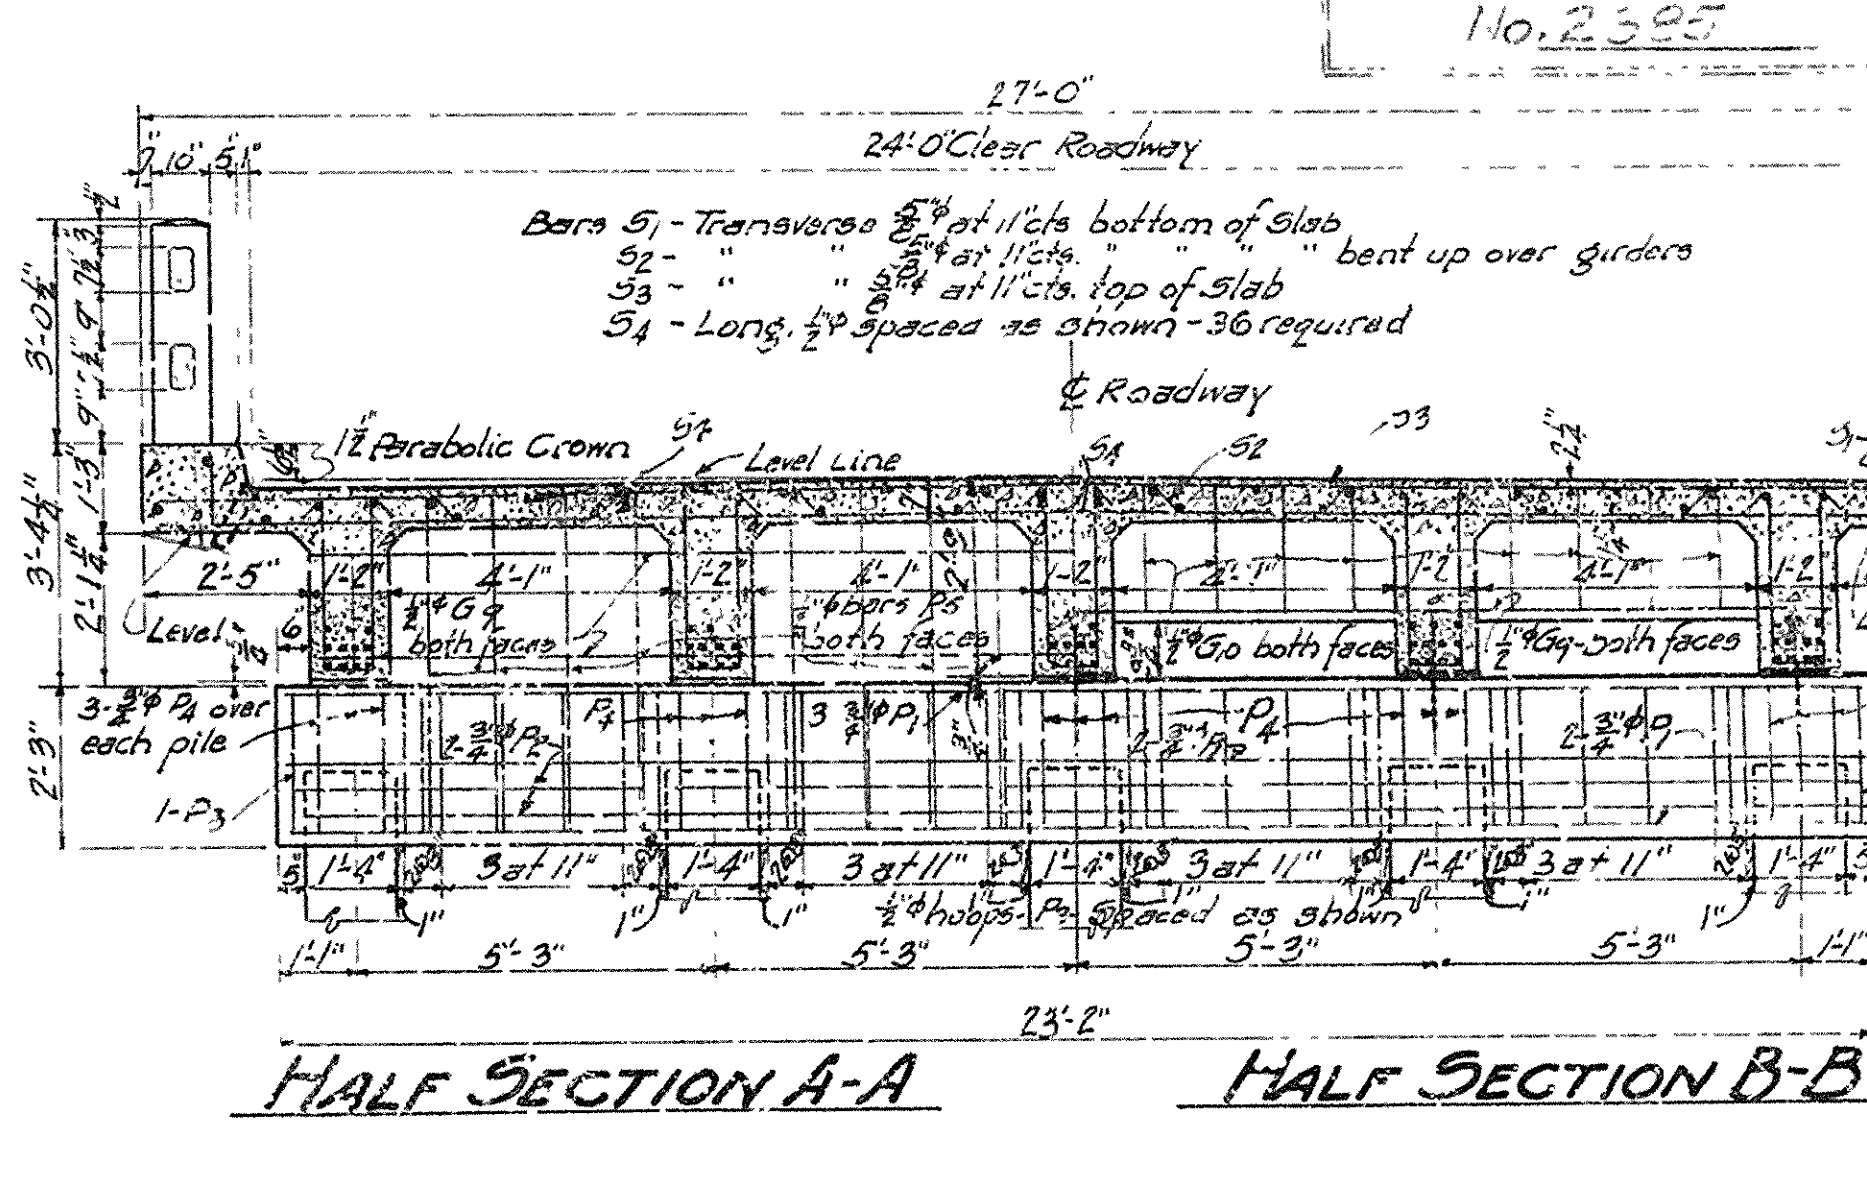 No. 2385
27'-0"
24'-0" Clear Roadway
10" 5" 1"
Bars S1 - Transverse 5/8"ϕ at 11"cts bottom of Slab
S2 - " " 5/8"ϕ at 11"cts. " " " " bent up over girders
S3 - " " 5/8"ϕ at 11"cts. top of Slab
S4 - Long. 1/2"ϕ spaced as shown - 36 required
℄ Roadway
3'-0 1/2"
3'-4 1/2"
1'-3"
2'-1 1/4"
2'-3"
1 1/2" Parabolic Crown
Level Line
S4
S2
S3
2 1/4"
2'-5" 1'-2" 4'-1" 1'-2" 4'-1" 1'-2" 4'-1" 1'-2" 4'-1" 1'-2"
Level
6"
1/2"ϕ G9
both faces
1/2"ϕ bars P5
both faces
1/2"ϕ G10 both faces
1/2"ϕ G9-both faces
3-3/4"ϕ P4 over
each pile
1-P3
2-3/4"ϕ P2
P4
3 3/4"ϕ P1
2-3/4"ϕ P2
P4
2-3/4"ϕ P1
5" 1'-4" 3 at 11" 1'-4" 3 at 11" 1'-4" 3 at 11" 1'-4" 3 at 11" 1'-4"
1" 1" 1" 1" 1" 1" 1"
1/2"ϕ hoops- P3- Spaced as shown
1'-1" 5'-3" 5'-3" 5'-3" 5'-3" 1'-1"
23'-2"
HALF SECTION A-A
HALF SECTION B-B